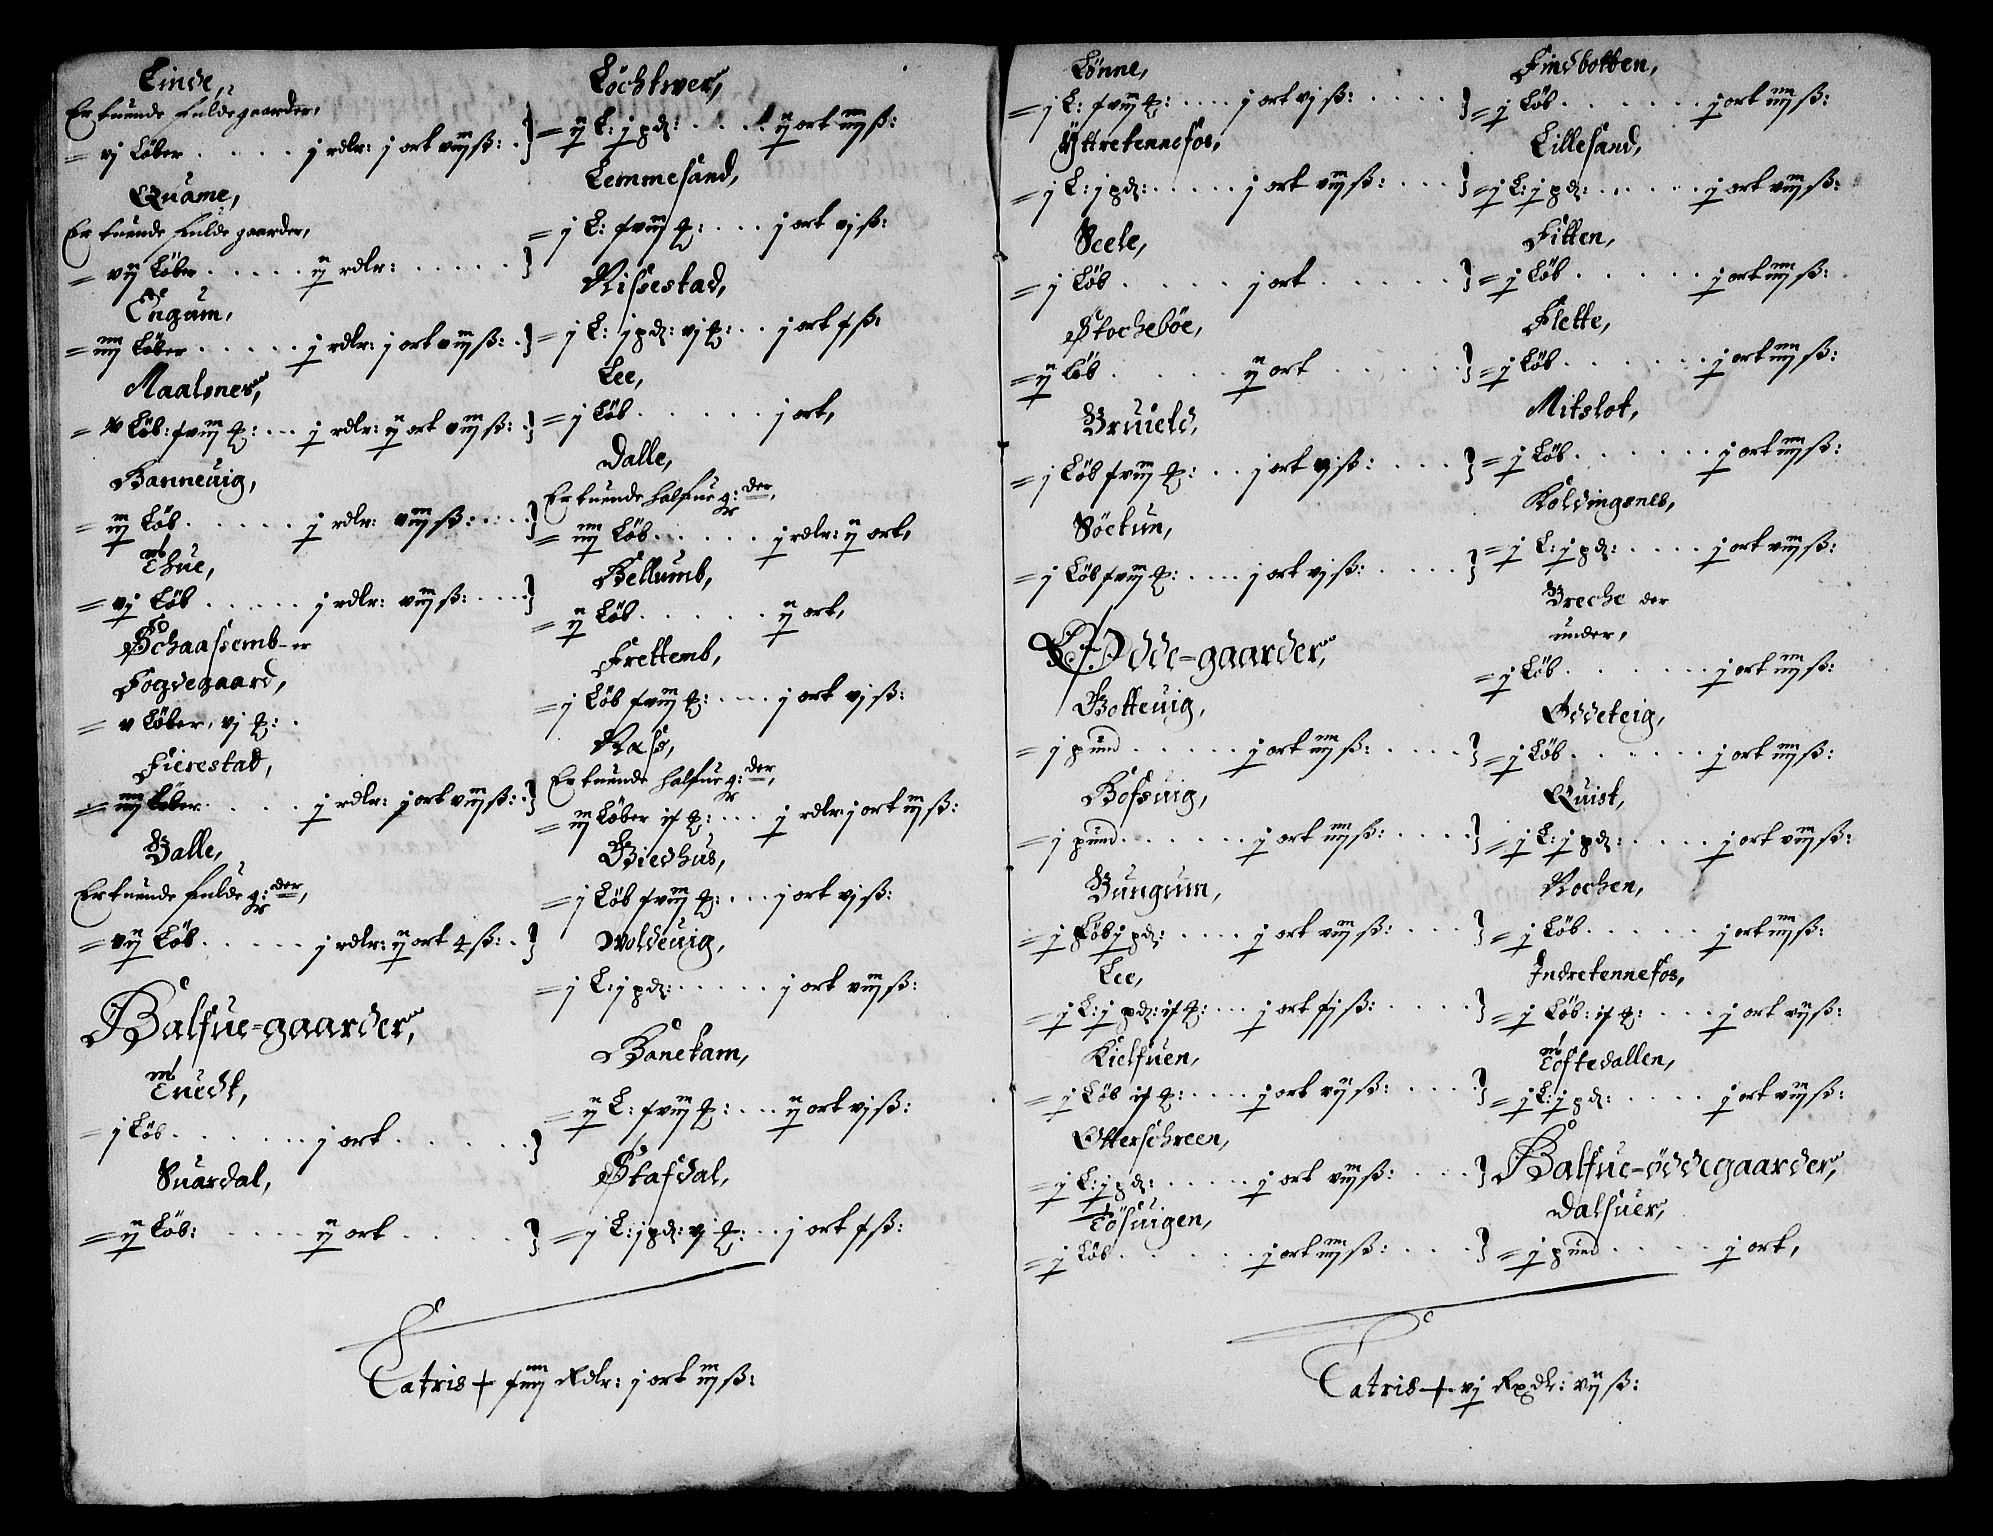 Linde,
Er tuende fulde gaarder,
= vj Løber . . . . . j rdlr: j ort viij ß: .
Quame,
Er tuende fulde gaarder,
= vij Løber . . . . . ij rdlr: . . . . .
Engum,
= iiij Løber . . . . . j rdlr: j ort viij ß: .
Maalsnes,
= v Løb: f viij ... j rdlr: ij ort viij ß: .
Hanneuig,
= iij Løb . . . . . j rdlr: viij ß: . . .
Thue,
= vj Løb . . . . . j rdlr: viij ß: . . .
Schaassemb-er
Fogdegaard,
= v Løber, vj
Fierestad,
= iiij Løber . . . . j rdlr: j ort viij ß: .
Balle,
Er tuende fulde g:der,
= vij Løb . . . . . j rdlr: ij ort 4 ß: .
Halfue-gaarder,
Tuedt,
= j Løb . . . . . . j ort . . . . .
Suardal,
= ij Løb: . . . . ij ort . . . . .
Lochtwer,
= ij L: j pd: . . . . ij ort iiij ß:
Lemmesand,
= j L: f viij ... j ort vj ß:
Rissestad,
= j L: j pd: vj ... j ort f ß:
Lee,
= j Løb . . . . . j ort,
Dalle,
Er tuende halfue g:der,
= iiij Løb . . . . . j rdlr: ij ort,
Hellumb,
= ij Løb . . . . . ij ort,
Frettemb,
= j Løb f viij ... j ort vj ß:
Rass,
Er tuende halfue g:der,
= iij Løber if ... j rdlr: j ort iij ß:
Giedhus,
= j Løb f viij ... j ort vj ß:
Woldeuig,
= j L: j pd: . . . . . j ort viij ß:
Hanekam,
= ij L: f viij ... ij ort vj ß:
Stafdal,
= j L: j pd: vj ... j ort f ß:
Latris + f iiij Rdlr: j ort iij ß:
Lønne,
= j L: f viij ... j ort vj ß: . . . .
Yttretennefos,
= j L: j pd: . . . . . j ort viij ß: . . .
Seele,
= j Løb . . . . . j ort . . . . . .
Stochebøe,
= ij Løb . . . . . ij ort . . . . . .
Bruield,
= j Løb f viij ... j ort vj ß: . . . .
Søetun,
= j Løb f viij ... j ort vj ß: . . . .
Ødde-gaarder,
Botteuig,
= j pund . . . . . j ort iiij ß: . . . .
Hofsuig,
= j pund . . . . . . j ort iiij ß: . . . .
Bungum,
= j Løb j pd: . . . . j ort viij ß: . . .
Lee,
= j L: j pd: if ... j ort fj ß: . . . .
Kielfuen,
= j Løb if ... j ort vij ß: . . . .
Otterschreen,
= j L: j pd: . . . . . j ort viij ß: . . .
Tøsuigen,
= j Løb . . . . . . j ort iiij ß: . . . .
Findbotten,
= j Løb . . . . . . j ort iiij ß:
Lillesand,
= j L: j pd: . . . . . j ort viij ß:
Fitten,
= j Løb . . . . . j ort iiij ß:
Flette,
= j Løb . . . . . . j ort iiij ß:
Mitslot,
= j Løb . . . . . . j ort iiij ß:
Koldingsnes,
= j L: j pd: . . . . j ort viij ß:
Breche der
under,
= j Løb . . . . . . j ort iiij ß:
Oddeteig,
= j Løb . . . . . . j ort iiij ß:
Quist,
= j L: j pd: . . . . . j ort viij ß:
Rochen,
= j Løb . . . . . j ort iiij ß:
Indretennefos,
= j Løb: if ... j ort vij ß:
Toftedallen,
= j L: j pd: . . . . j ort viij ß:
Halfue-øddegaarder,
Dalsuer,
= j pund . . . . j ort,
Latris + vj Rxdlr: vij ß: